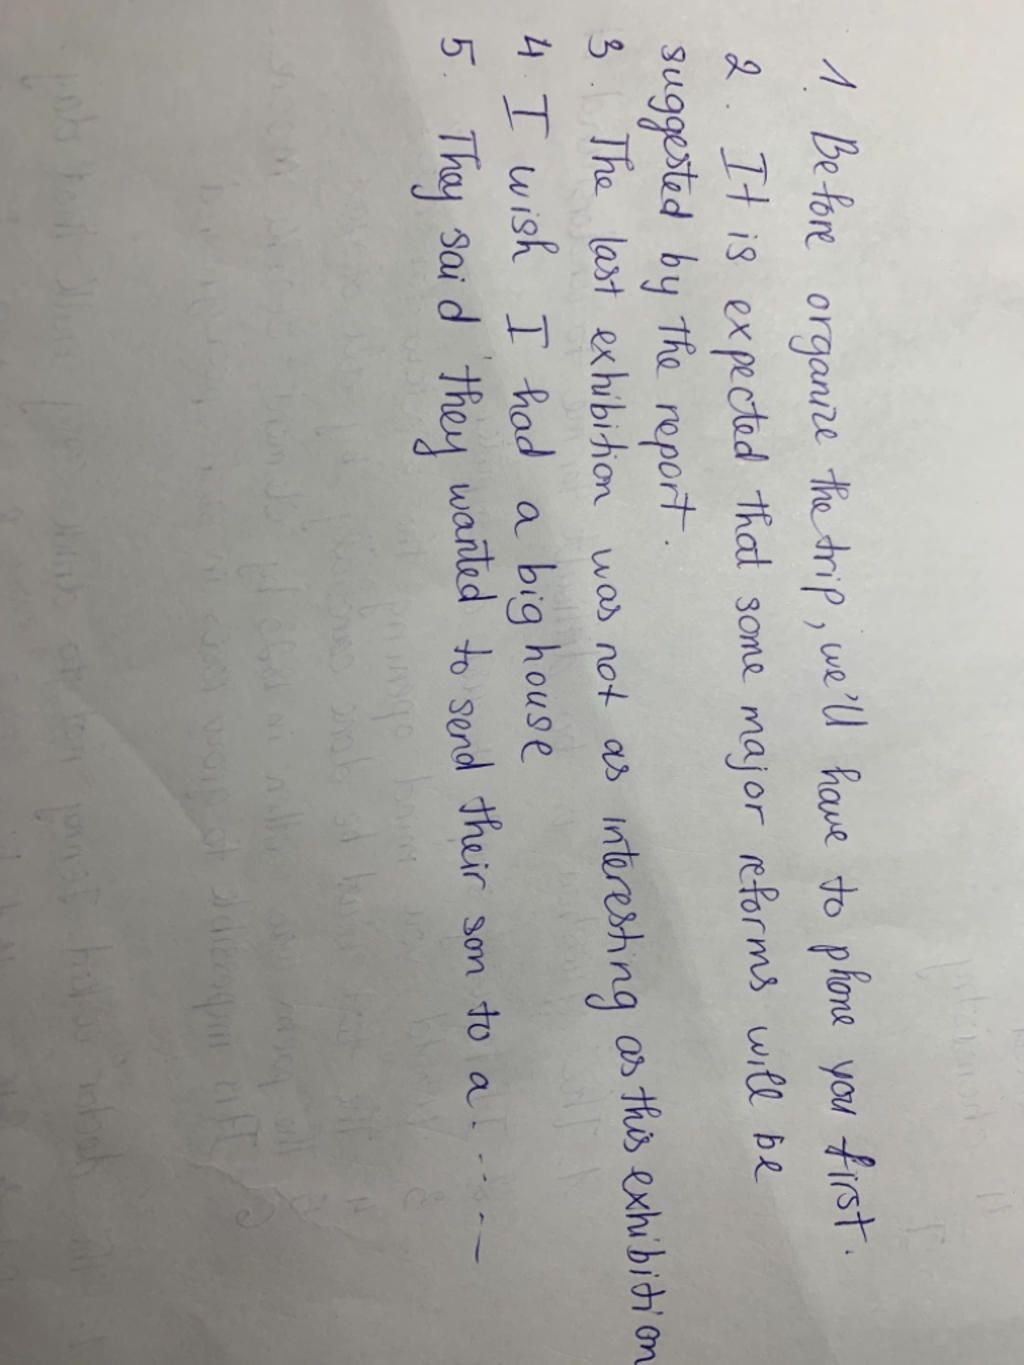 1. Before organize the trip, we'll have to phone you first.
2. It is expected that some major reforms will be
suggested by the report.
3. The last exhibition was not as interesting as this exhibition
4. I wish I had a big house
5. They said they wanted to send their son to a.----